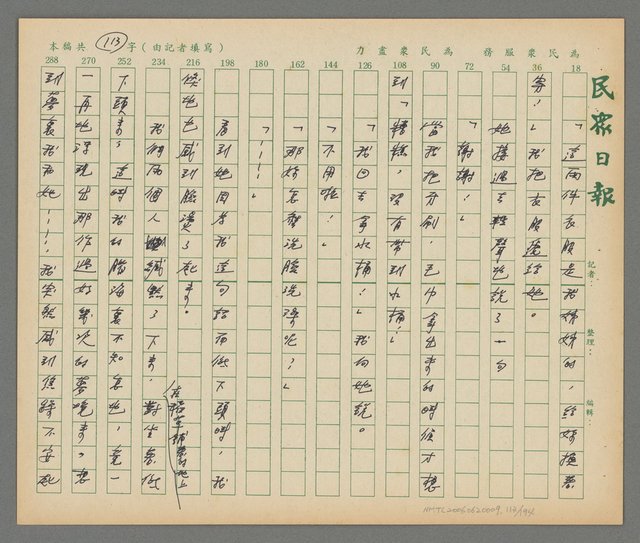 民眾日報
為民眾服務　為民眾盡力
本稿共 113 字（由記者填寫）
記者：
整理：
編輯：
18 「這兩件衣服是我姊姊的，給妳換
36 穿，」我把衣服遞給她。
54 她接過去輕聲地說了一句
72 「謝謝！」
90 當我把牙刷、毛巾拿出來的時候才想
108 到「糟糕，沒有帶到水桶！
126 「我回去拿水桶！」我向她說。
144 「不用啦！
162 「那妳怎麼洗臉洗澡呢？」
180 「！！！」
198 看到她因為我這句話而低下頭時，我
216 倏地也感到臉燙了起來。
234 我們兩個人緘默了下來，對坐着低
在稻草鋪著地上
252 下頭來，這時我的腦海裏不知怎地，竟一
270 一再地浮現出那作過好幾次的夢境來，想
288 到夢裏我和她！！！，我突然感到焦躁不安起
NMTL20060620009, 113/194